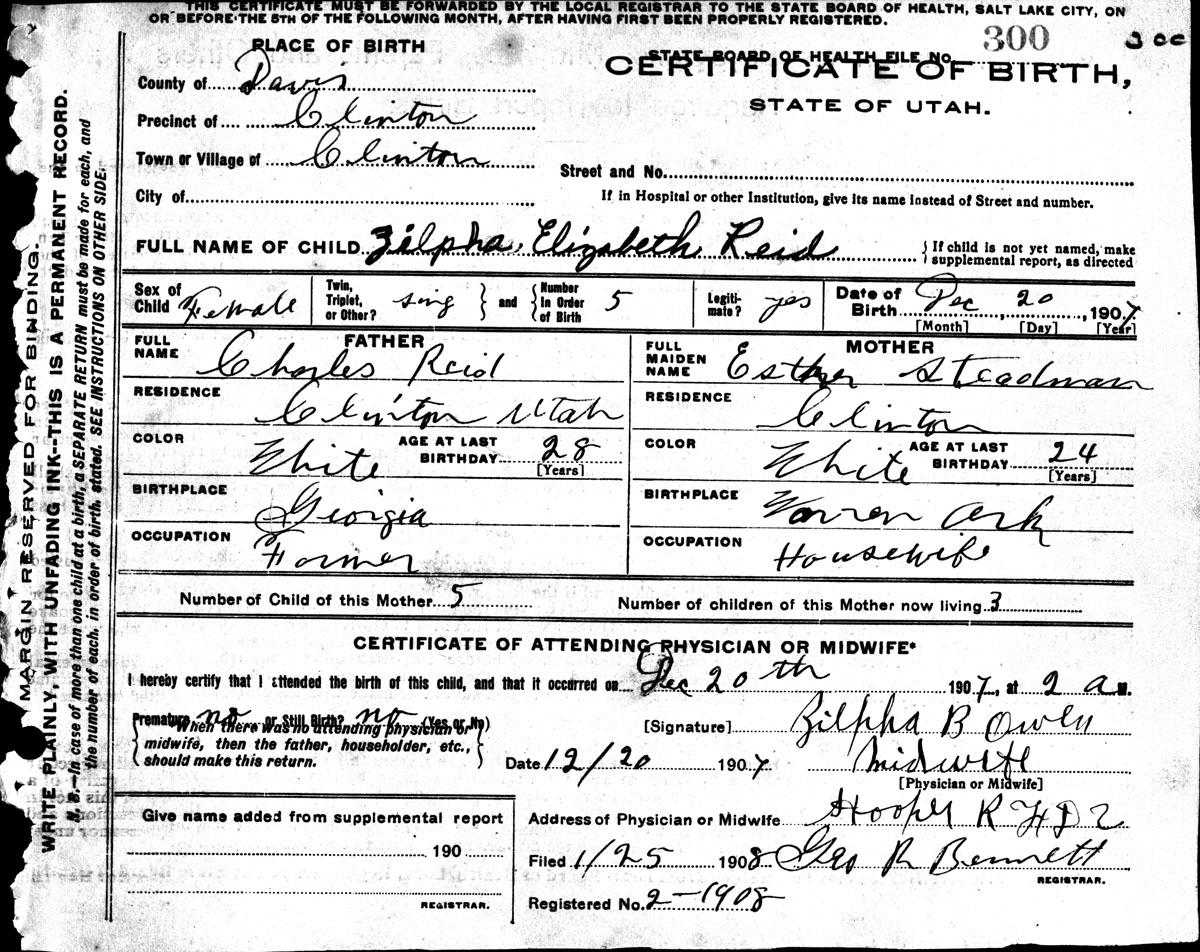 THIS CERTIFICATE MUST BE FORWARDED BY THE LOCAL REGISTRAR TO THE STATE BOARD OF HEALTH, SALT LAKE CITY, ON
OR BEFORE THE 5TH OF THE FOLLOWING MONTH, AFTER HAVING FIRST BEEN PROPERLY REGISTERED.
MARGIN RESERVED FOR BINDING.
WRITE PLAINLY, WITH UNFADING INK--THIS IS A PERMANENT RECORD.
N. B.—In case of more than one child at a birth, a SEPARATE RETURN must be made for each, and
the number of each, in order of birth, stated. SEE INSTRUCTIONS ON OTHER SIDE.
PLACE OF BIRTH
STATE BOARD OF HEALTH FILE NO. 300
300
CERTIFICATE OF BIRTH,
STATE OF UTAH.
County of Davis
Precinct of Clinton
Town or Village of Clinton
Street and No.
City of
If in Hospital or other Institution, give its name instead of Street and number.
FULL NAME OF CHILD. Zilpha Elizabeth Reid
If child is not yet named, make
supplemental report, as directed
Sex of Child Female
Twin, Triplet, or Other? sing and Number In Order of Birth 5
Legiti- mate? yes
Date of Birth Dec 20, 1907
[Month] [Day] [Year]
FATHER
FULL NAME Charles Reid
RESIDENCE Clinton Utah
COLOR White AGE AT LAST BIRTHDAY 28
[Years]
BIRTHPLACE Georgia
OCCUPATION Farmer
MOTHER
FULL MAIDEN NAME Esther Steadman
RESIDENCE Clinton
COLOR White AGE AT LAST BIRTHDAY 24
[Years]
BIRTHPLACE Warren Ark
OCCUPATION Housewife
Number of Child of this Mother 5
Number of children of this Mother now living 3
CERTIFICATE OF ATTENDING PHYSICIAN OR MIDWIFE*
I hereby certify that I attended the birth of this child, and that it occurred on Dec 20th 1907, at 2 a M.
Premature no or Still Birth? no (Yes or No)
*When there was no attending physician or
midwife, then the father, householder, etc.,
should make this return.
[Signature] Zilpha B Owen
Date 12/20 1907
Midwife
[Physician or Midwife]
Address of Physician or Midwife Hooper R F D 2
Give name added from supplemental report
190
REGISTRAR.
Filed 1/25 1908 Geo R Bennett
REGISTRAR.
Registered No. 2-1908